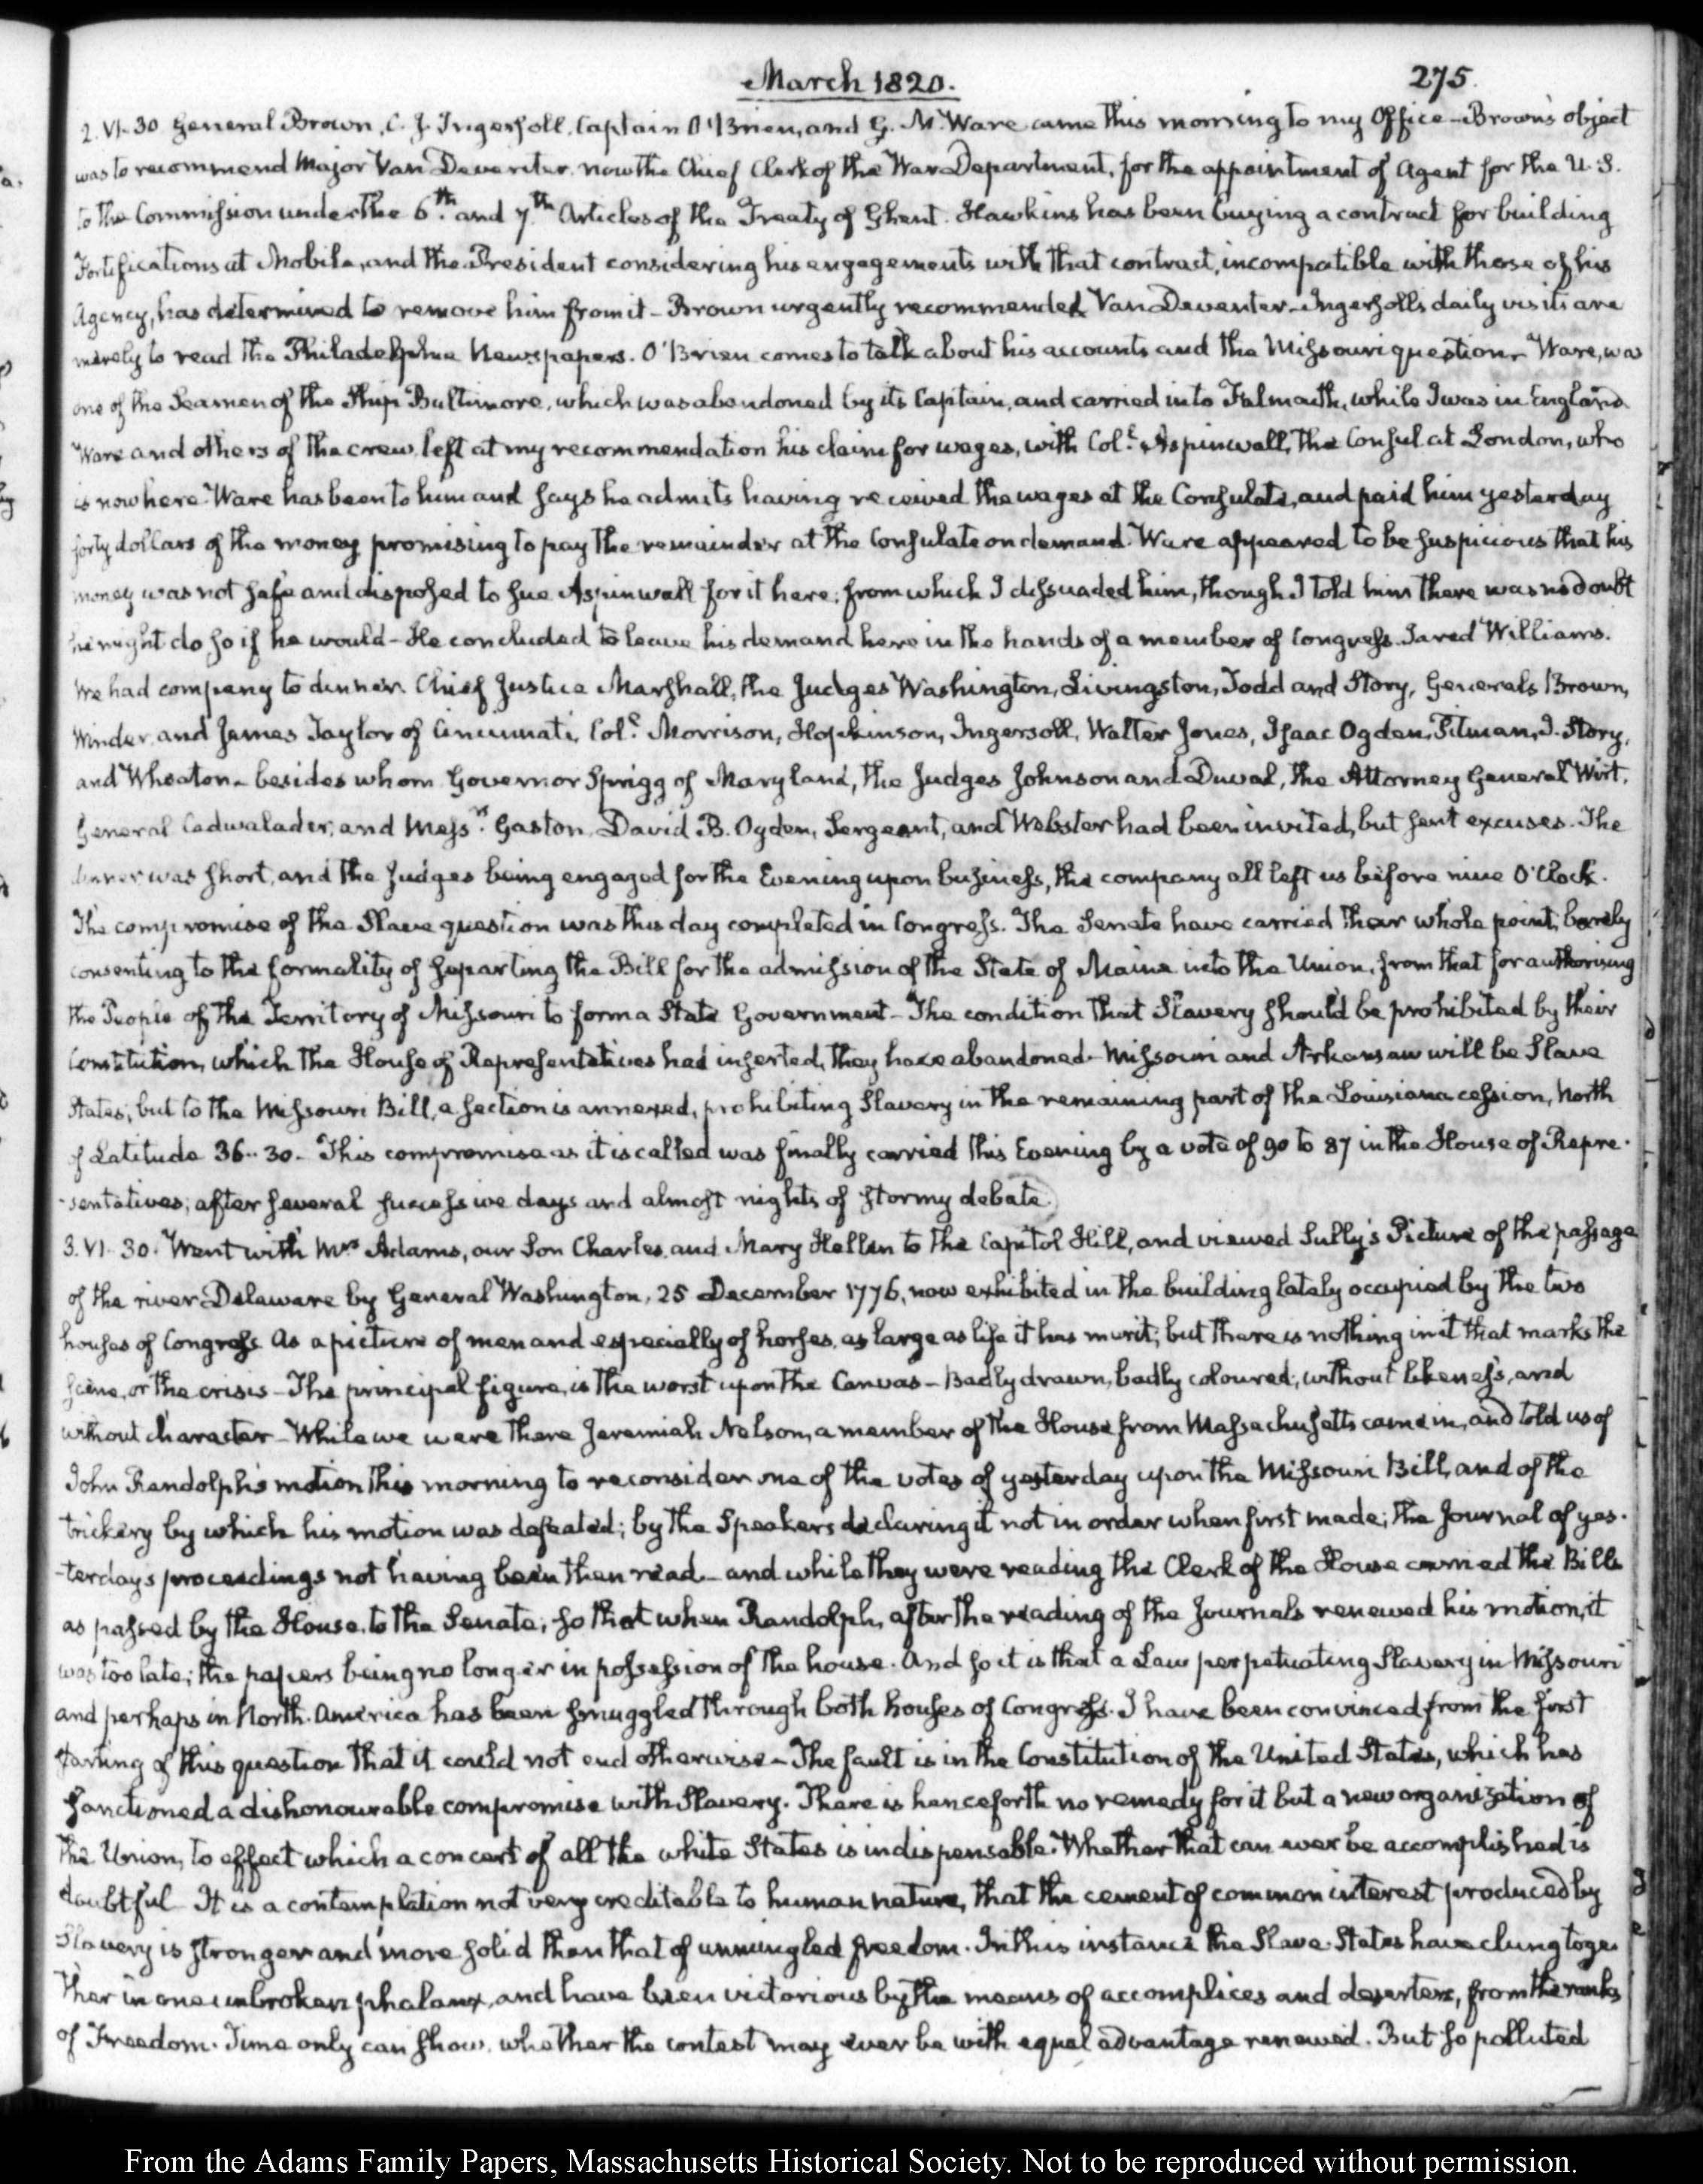 March 1820.
275.
2. VI-30 General Brown, C. J. Ingersoll, Captain O'Brien, and G. M. Ware came this morning to my Office - Brown's object
was to recommend Major Van Deventer now the Chief Clerk of the War Department, for the appointment of Agent for the U.S.
to the Commission under the 6th. and 7th. Articles of the Treaty of Ghent. Hawkins has been buying a contract for building
Fortifications at Mobile, and the President considering his engagements with that contract, incompatible with those of his
Agency, has determined to remove him from it - Brown urgently recommended Van Deventer - Ingersoll's daily visits are
merely to read the Philadelphia Newspapers. O'Brien comes to talk about his accounts and the Missouri question - Ware, was
one of the Seamen of the Ship Baltimore, which was abandoned by its Captain, and carried into Falmouth, while I was in England
Ware and others of the crew left at my recommendation his claim for wages, with Coll. Aspinwall, the Consul at London, who
is now here. Ware has been to him and says he admits having received the wages at the Consulate, and paid him yesterday
forty dollars of the money promising to pay the remainder at the Consulate on demand. Ware appeared to be suspicious that his
money was not safe and disposed to sue Aspinwall for it here; from which I dissuaded him, though I told him there was no doubt
he might do so if he would - He concluded to leave his demand here in the hands of a member of Congress. Jared Williams.
We had company to dinner. Chief Justice Marshall, the Judges Washington, Livingston, Todd and Story, Generals Brown,
Winder, and James Taylor of Cincinnati, Coll. Morrison, Hopkinson, Ingersoll, Walter Jones, Isaac Ogden, Pitman, I. Story,
and Wheaton - besides whom Governor Sprigg of Maryland, the Judges Johnson and Duval, the Attorney General Wirt,
General Cadwalader, and Messrs. Gaston, David B. Ogden, Sergeant, and Webster had been invited, but sent excuses. The
dinner was short, and the Judges being engaged for the Evening upon business, the company all left us before nine O'Clock.
The compromise of the Slave question was this day completed in Congress. The Senate have carried their whole point, barely
consenting to the formality of separting the Bill for the admission of the State of Maine into the Union, from that for authorising
the People of the Territory of Missouri to form a State Government - The condition that Slavery should be prohibited by their
Constitution, which the House of Representatives had inserted, they have abandoned. Missouri and Arkansaw will be Slave
States; but to the Missouri Bill, a section is annexed, prohibiting Slavery in the remaining part of the Louisiana cession, North
of Latitude 36..30 - This compromise as it is called was finally carried this Evening by a vote of 90 to 87 in the House of Repre-
-sentatives; after several successive days and almost nights of stormy debate
3. VI-30. Went with Mrs Adams, our Son Charles, and Mary Hellen to the Capitol Hill, and viewed Sully's Picture of the passage
of the river Delaware by General Washington, 25 December 1776, now exhibited in the building lately occupied by the two
houses of Congress. As a picture of men and especially of horses, as large as life it has merit; but there is nothing in it that marks the
scene, or the crisis - The principal figure, is the worst upon the Canvas - Badly drawn, badly coloured, without likeness, and
without character - While we were there Jeremiah Nelson, a member of the House from Massachusetts came in, and told us of
John Randolph's motion this morning to reconsider one of the votes of yesterday upon the Missouri Bill, and of the
trickery by which his motion was defeated; by the Speakers declaring it not in order when first made; the Journal of yes-
-terday's proceedings not having been then read - and while they were reading the Clerk of the House carried the Bills
as passed by the House, to the Senate; so that when Randolph, after the reading of the Journals renewed his motion, it
was too late; the papers being no longer in possession of the house. And so it is that a Law perpetuating Slavery in Missouri
and perhaps in North America has been smuggled through both houses of Congress. I have been convinced from the first
starting of this question that it could not end otherwise - The fault is in the Constitution of the United States, which has
sanctioned a dishonourable compromise with Slavery. There is henceforth no remedy for it but a new organization of
the Union, to effect which a concert of all the white States is indispensable. Whether that can ever be accomplished is
doubtful. It is a contemplation not very creditable to human nature, that the cement of common interest produced by
Slavery is stronger and more solid than that of unmingled freedom. In this instance the Slave States have clung toge-
ther in one unbroken phalanx, and have been victorious by the means of accomplices and deserters, from the ranks
of Freedom. Time only can show, whether the contest may ever be with equal advantage renewed. But so polluted
From the Adams Family Papers, Massachusetts Historical Society. Not to be reproduced without permission.